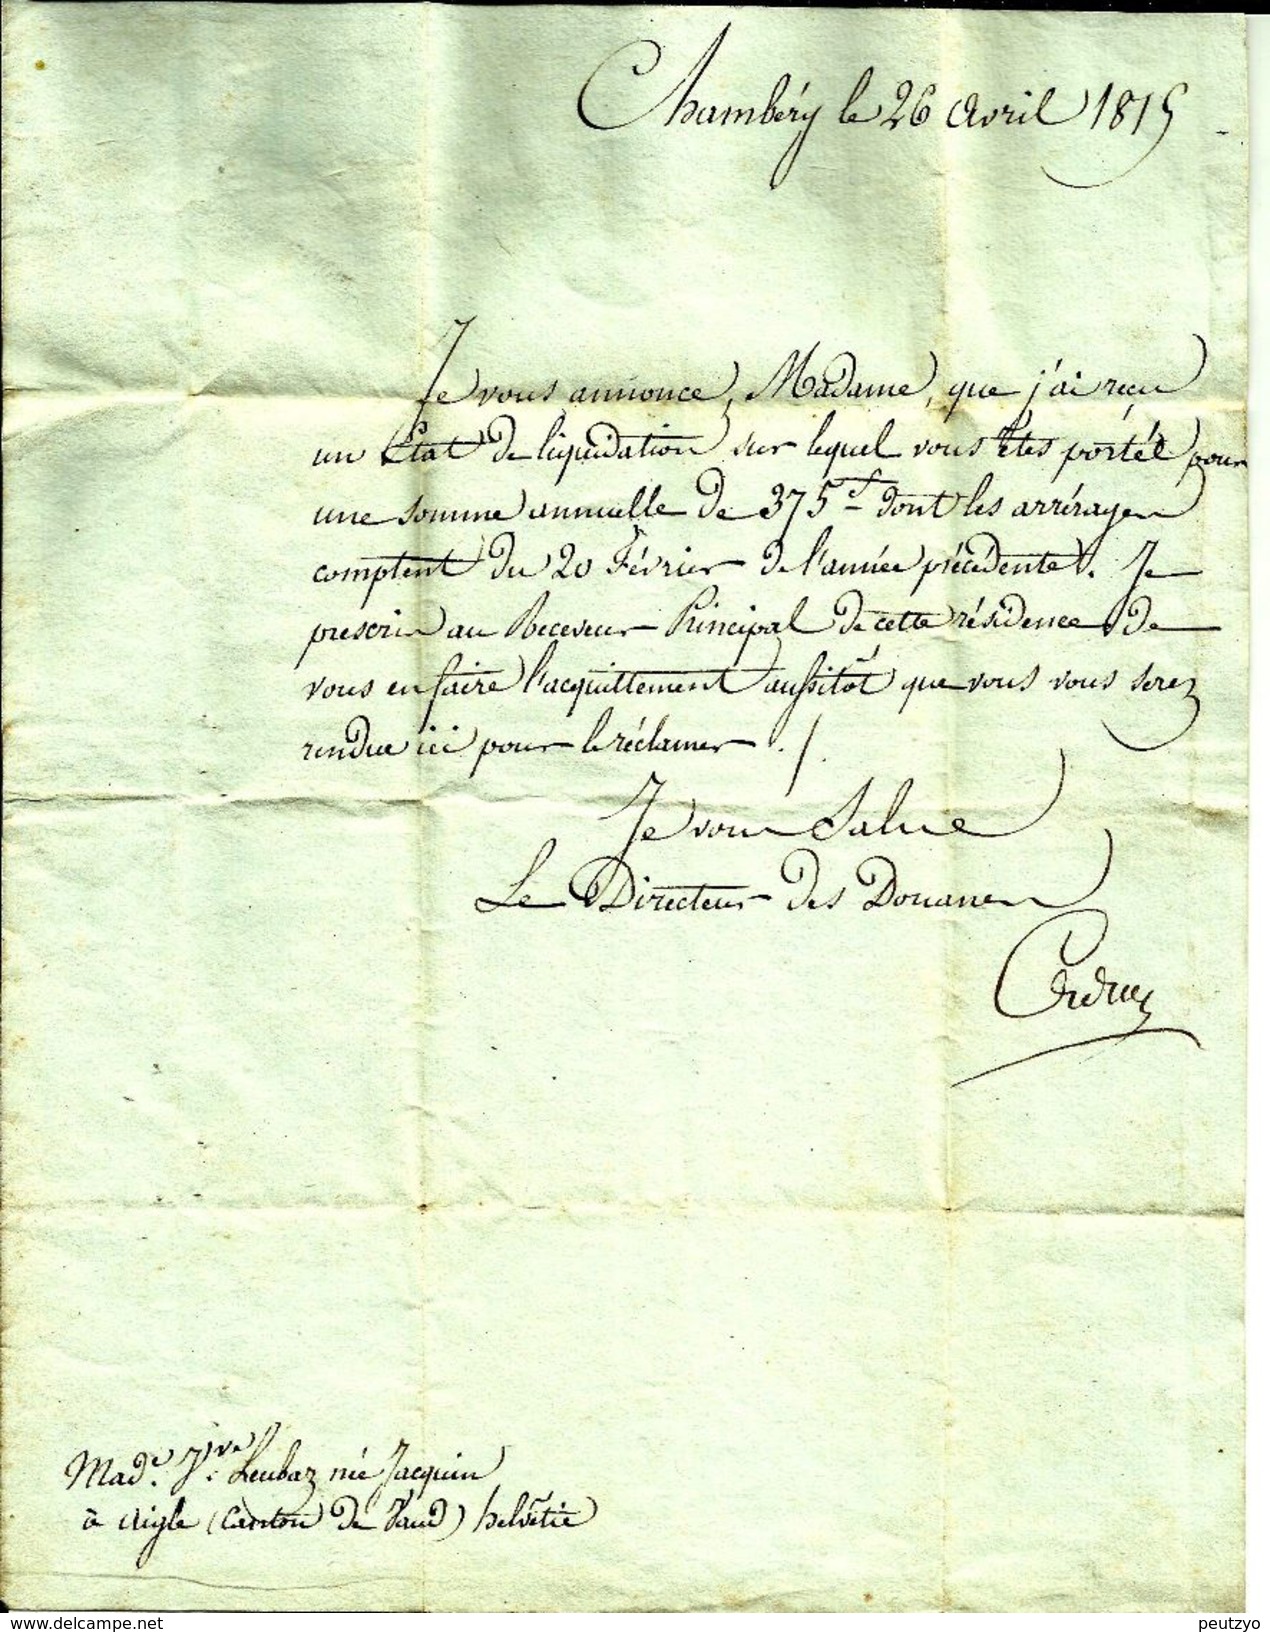 Chambéry le 26 Avril 1815
Je vous annonce, Madame, que j'ai reçu
un Etat de liquidation sur lequel vous êtes portée pour
une somme annuelle de 375f dont les arrérages
comptent du 20 Février de l'année précédente. Je
prescris au Receveur Principal de cette résidence de
vous en faire l'acquittement aussitôt que vous vous serez
rendue ici pour le réclamer ./.
Je vous Salue
Le Directeur des Douanes
Made. Vve. Leubaz née Jacquin
à Aigle (Canton de Vaud) helvétie
delcampe.net
peutzyo